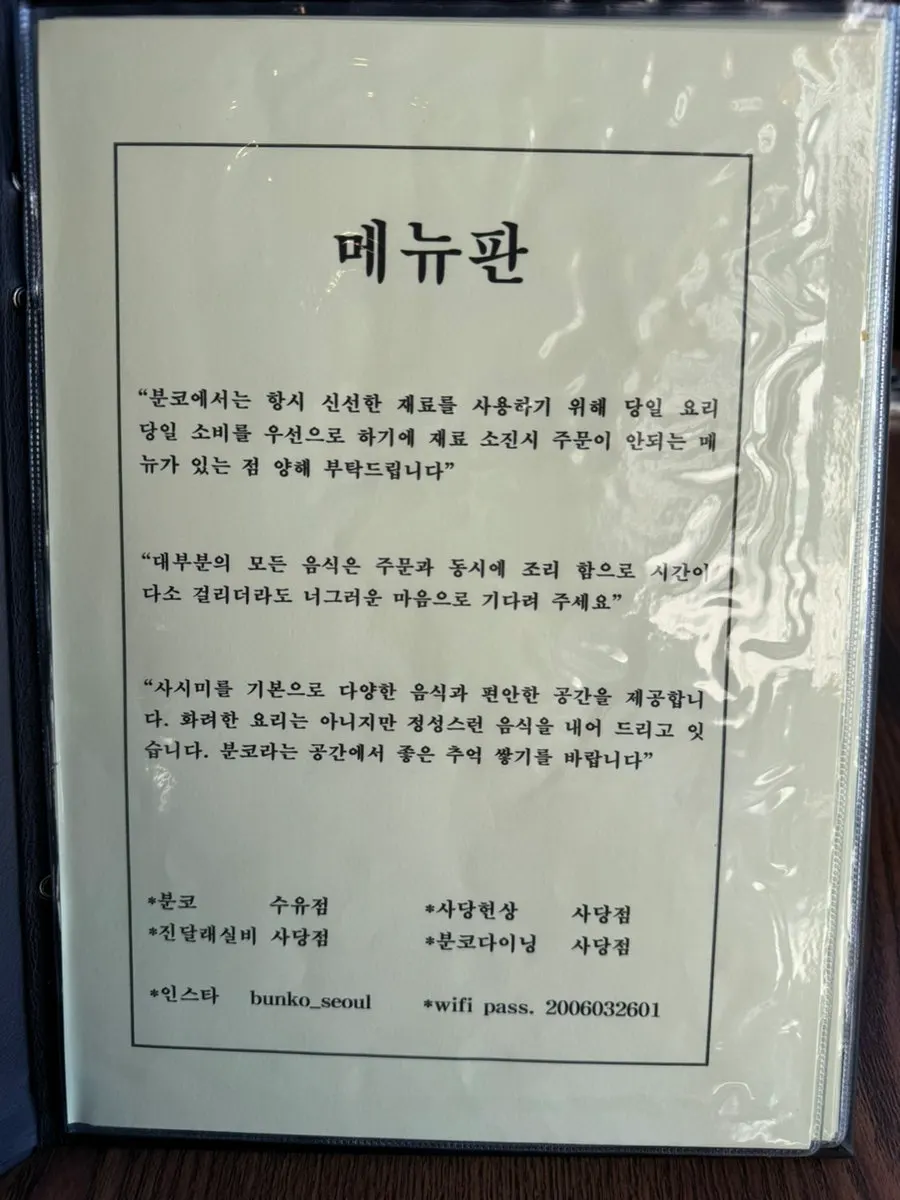 메뉴판
“분코에서는 항시 신선한 재료를 사용하기 위해 당일 요리
당일 소비를 우선으로 하기에 재료 소진시 주문이 안되는 메
뉴가 있는 점 양해 부탁드립니다”
“대부분의 모든 음식은 주문과 동시에 조리 함으로 시간이
다소 걸리더라도 너그러운 마음으로 기다려 주세요”
“사시미를 기본으로 다양한 음식과 편안한 공간을 제공합니
다. 화려한 요리는 아니지만 정성스런 음식을 내어 드리고 잇
습니다. 분코라는 공간에서 좋은 추억 쌓기를 바랍니다”
*분코 수유점 *사당헌상 사당점
*진달래실비 사당점 *분코다이닝 사당점
*인스타 bunko_seoul *wifi pass. 2006032601